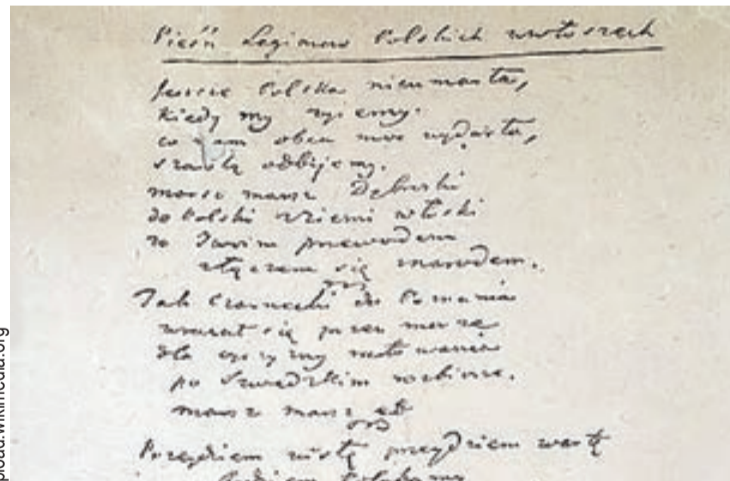 Pieśń Legionow Polskich wewłoszech
Jeszcze Polska nieumarła,
kiedy my żyiemy.
co nam obca moc wydarła,
szablą odbijemy.
marsz marsz Dąbrski
do Polski zziemi włoski
za Twoim przewodem
złączem się znarodem.
Jak Czarnecki do Poznania
wracał się przez morze
dla oyczyzny ratowania
po Szwedzkim rozbiorze.
marsz marsz etc
Przeydziem wisłę przeydziem wartę
będziem Polakami
pload.wikimedia.org